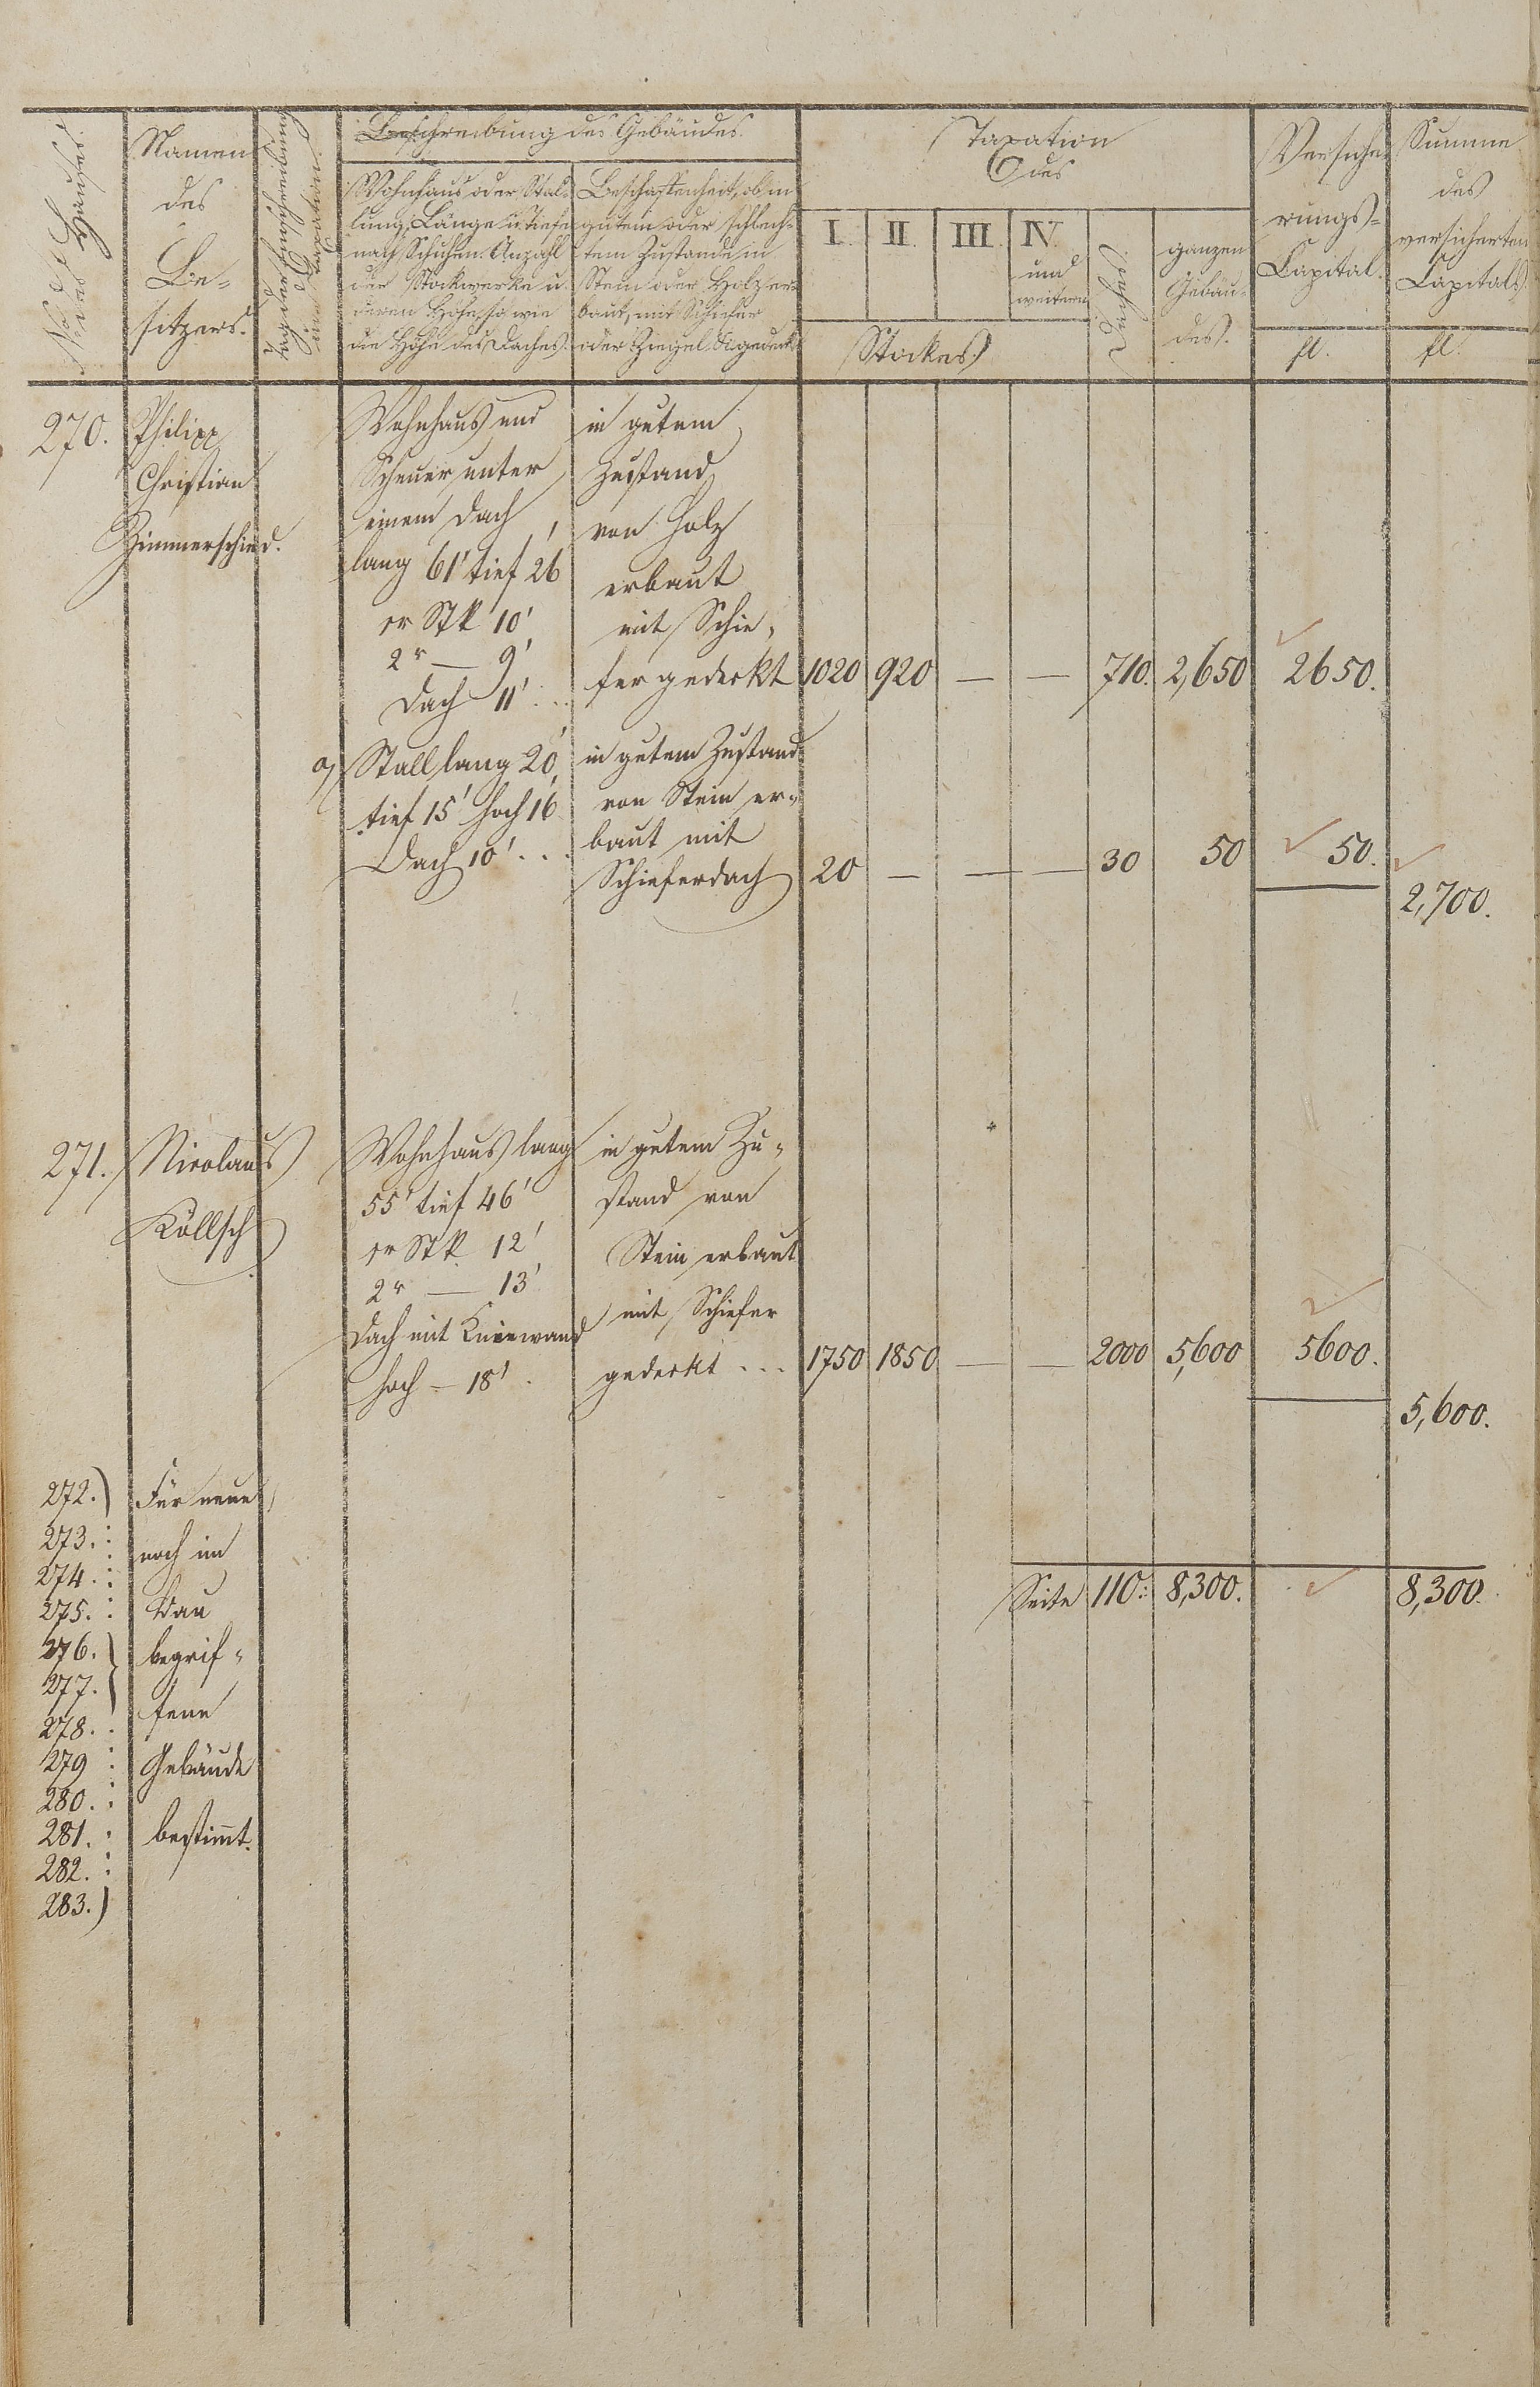 No des Hauses.
Namen
des
Be-
sitzers.
Beschreibung des Gebäudes.
Wohnhaus oder Stal-
lung, Länge u. Tiefe
nach Schuhen. Anzahl
der Stockwerke u.
deren Höhe, so wie
die Höhe des Daches.
Beschaffenheit, ob in
gutem oder schlech-
tem Zustande in
Stein oder Holz er-
baut, mit Schiefer
oder Ziegel &c gedeckt
Taxation
des
I. II. III. IV.
und
weitern
Stockes.
Daches
ganzen
Gebäu-
des.
Versiche-
rungs-
Capital.
fl.
Summe
des
versicherten
Capitals.
fl.
270.
Philipp
Christian
Zimmerschied.
Wohnhaus und
Scheuer unter
einem Dach
lang 61' tief 26'
er Stk 10'
2r — 9'
Dach 11' . .
in gutem
Zustand
von Holz
erbaut
mit Schie-
fer gedeckt 1020 920 — — 710. 2,650 2650.
a) Stall lang 20'
tief 15' hoch 16'
Dach 10' . . .
in gutem Zustand
von Stein er-
baut mit
Schieferdach 20 — — — 30 50 50.
2,700.
271.
Nicolaus
Köllsch
Wohnhaus lang
55' tief 46'
er Stk. 12'
2r — 13'
Dach mit Kniewand
hoch — 18' .
in gutem Zu-
stand von
Stein erbaut
mit Schiefer
gedeckt . . . 1750 1850 — — 2000 5,600 5600.
5,600.
Seite 110: 8,300. 8,300.
272.)
273. :
274. :
275. :
276.
277.
278. :
279 :
280. :
281. :
282. :
283.)
Für neue,
noch im
Bau
begrif-
fene
Gebäude
bestimmt.